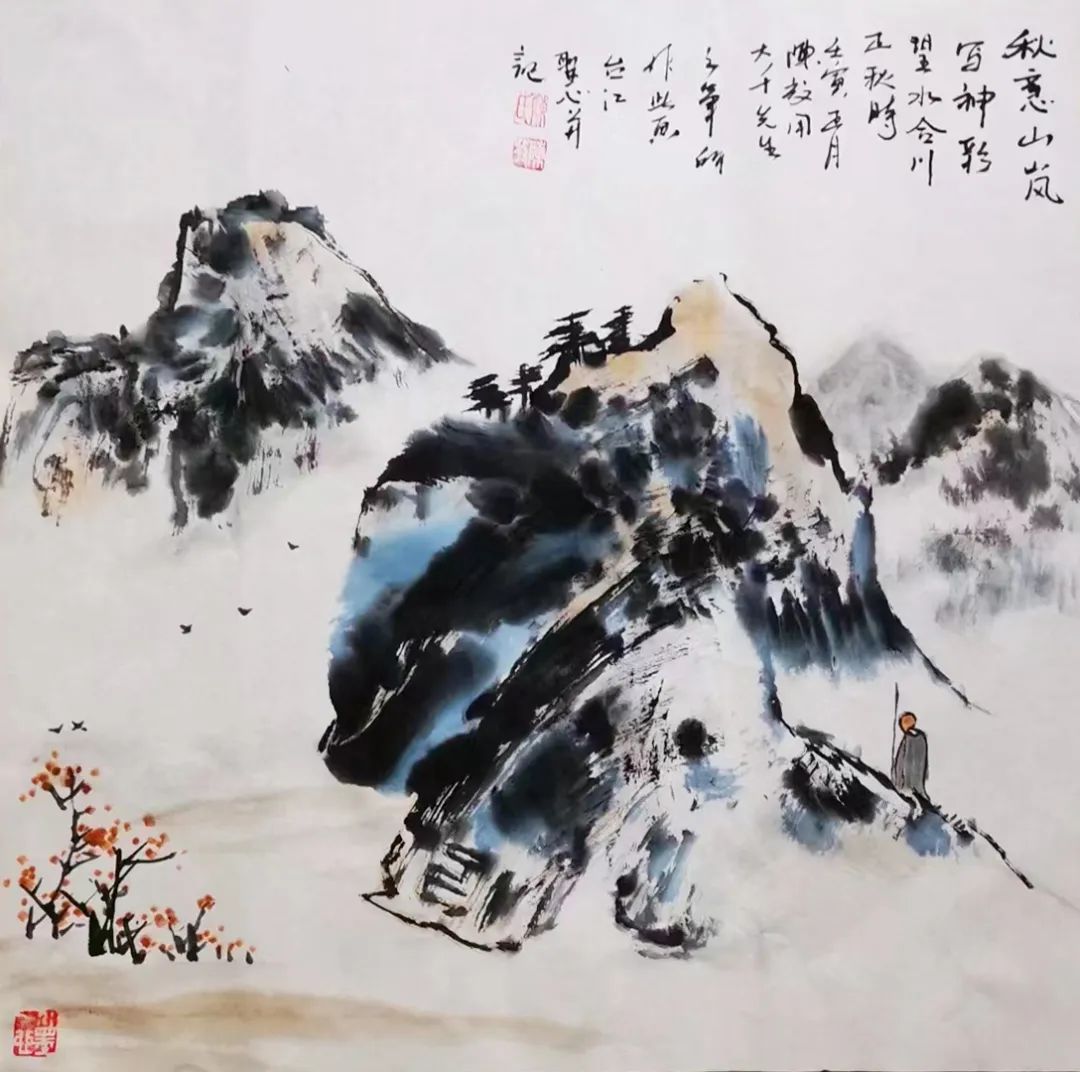 秋意山岚
写神彩
望水合川
正秋时
壬寅正月
陈教用
大千先生
之笔砚
作此画
台江
聚心并
记